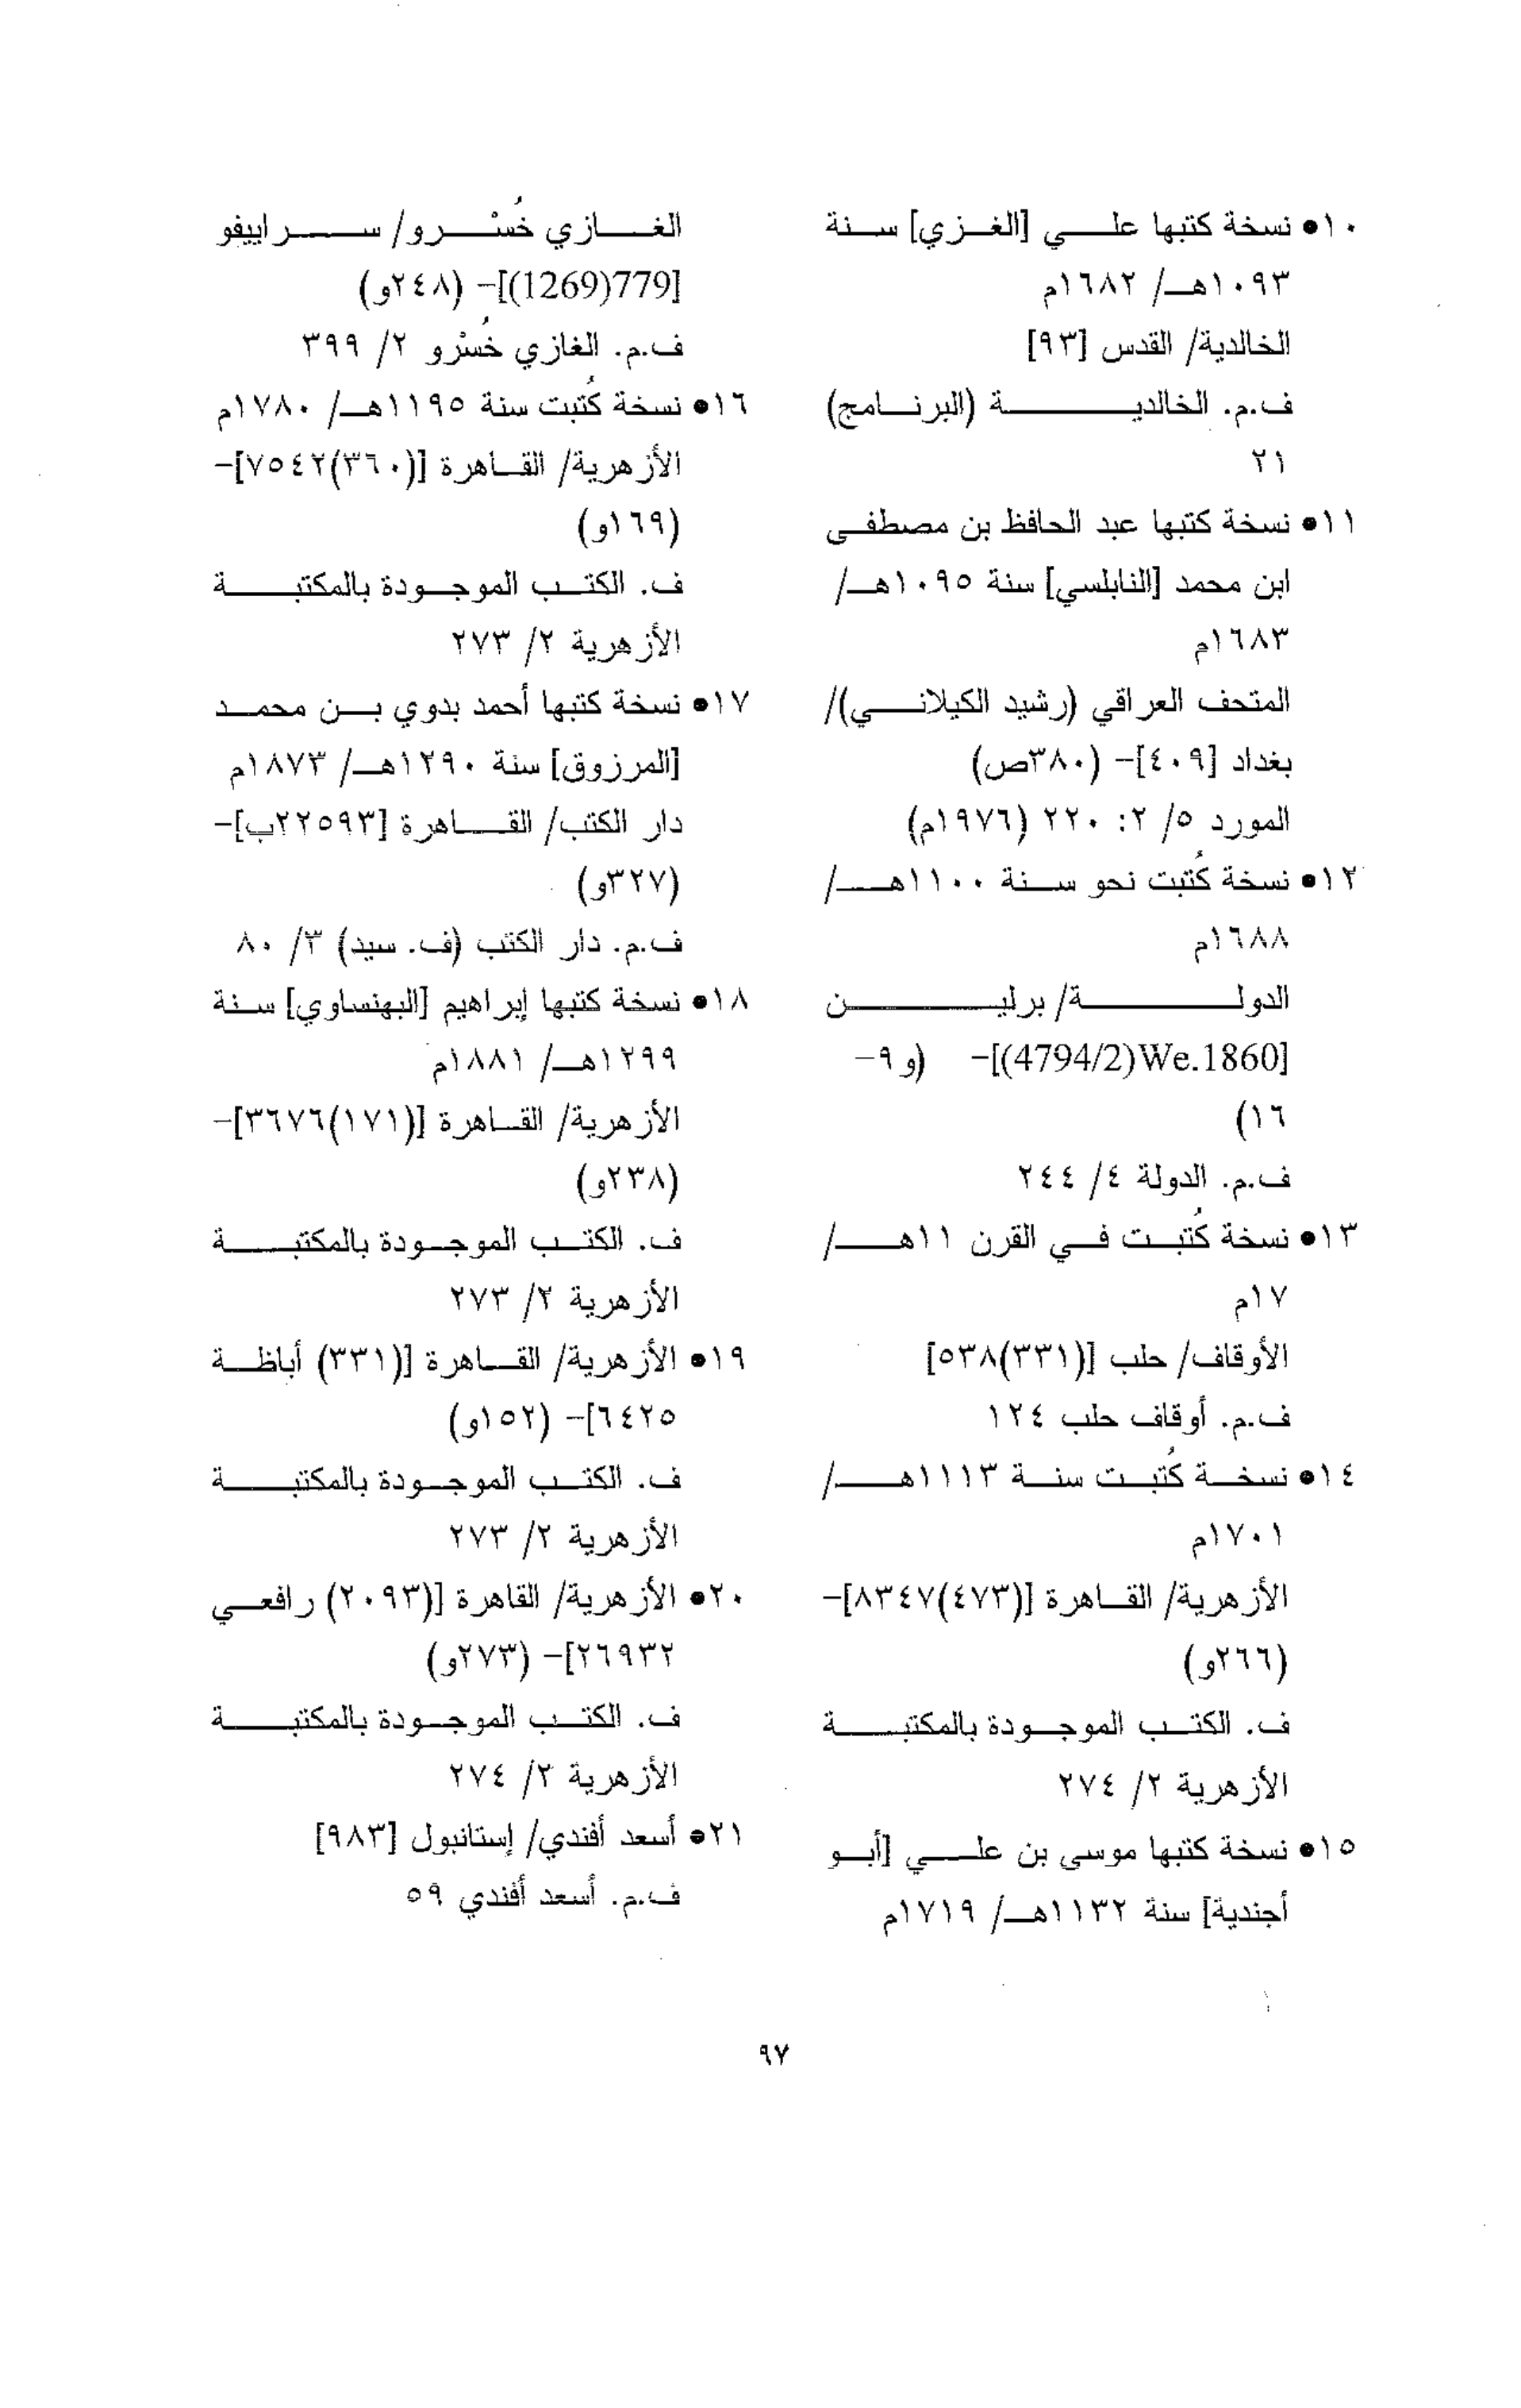 ١٠• نسخة كتبها علي [الغزي] سنة
١٠٩٣هـ/ ١٦٨٢م
الخالدية/ القدس [٩٣]
ف.م. الخالدية (البرنامج)
٢١
١١• نسخة كتبها عبد الحافظ بن مصطفى
ابن محمد [النابلسي] سنة ١٠٩٥هـ/
١٦٨٣م
المتحف العراقي (رشيد الكيلاني)/
بغداد [٤٠٩]- (٣٨٠ص)
المورد ٥/ ٢: ٢٢٠ (١٩٧٦م)
١٢• نسخة كُتبت نحو سنة ١١٠٠هـ/
١٦٨٨م
الدولة/ برلين
[4794/2)We.1860)]- (و٩-
١٦)
ف.م. الدولة ٤/ ٢٤٤
١٣• نسخة كُتبت في القرن ١١هـ/
١٧م
الأوقاف/ حلب [(٣٣١)٥٣٨]
ف.م. أوقاف حلب ١٢٤
١٤• نسخة كُتبت سنة ١١١٣هـ/
١٧٠١م
الأزهرية/ القاهرة [(٤٧٣)٨٣٤٧]-
(٢٦٦و)
ف. الكتب الموجودة بالمكتبة
الأزهرية ٢/ ٢٧٤
١٥• نسخة كتبها موسى بن علي [أبو
أجندية] سنة ١١٣٢هـ/ ١٧١٩م
الغازي خُسْرو/ سراييفو
[1269)779)]- (٢٤٨و)
ف.م. الغازي خُسْرو ٢/ ٣٩٩
١٦• نسخة كُتبت سنة ١١٩٥هـ/ ١٧٨٠م
الأزهرية/ القاهرة [(٣٦٠)٧٥٤٢]-
(١٦٩و)
ف. الكتب الموجودة بالمكتبة
الأزهرية ٢/ ٢٧٣
١٧• نسخة كتبها أحمد بدوي بن محمد
[المرزوق] سنة ١٢٩٠هـ/ ١٨٧٣م
دار الكتب/ القاهرة [٢٢٥٩٣ب]-
(٣٢٧و)
ف.م. دار الكتب (ف. سيد) ٣/ ٨٠
١٨• نسخة كتبها إبراهيم [البهنساوي] سنة
١٢٩٩هـ/ ١٨٨١م
الأزهرية/ القاهرة [(١٧١)٣٦٧٦]-
(٢٣٨و)
ف. الكتب الموجودة بالمكتبة
الأزهرية ٢/ ٢٧٣
١٩• الأزهرية/ القاهرة [(٣٣١) أباظة
٦٤٢٥]- (١٥٢و)
ف. الكتب الموجودة بالمكتبة
الأزهرية ٢/ ٢٧٣
٢٠• الأزهرية/ القاهرة [(٢٠٩٣) رافعي
٢٦٩٣٢]- (٢٧٣و)
ف. الكتب الموجودة بالمكتبة
الأزهرية ٢/ ٢٧٤
٢١• أسعد أفندي/ إستانبول [٩٨٣]
ف.م. أسعد أفندي ٥٩
٩٧